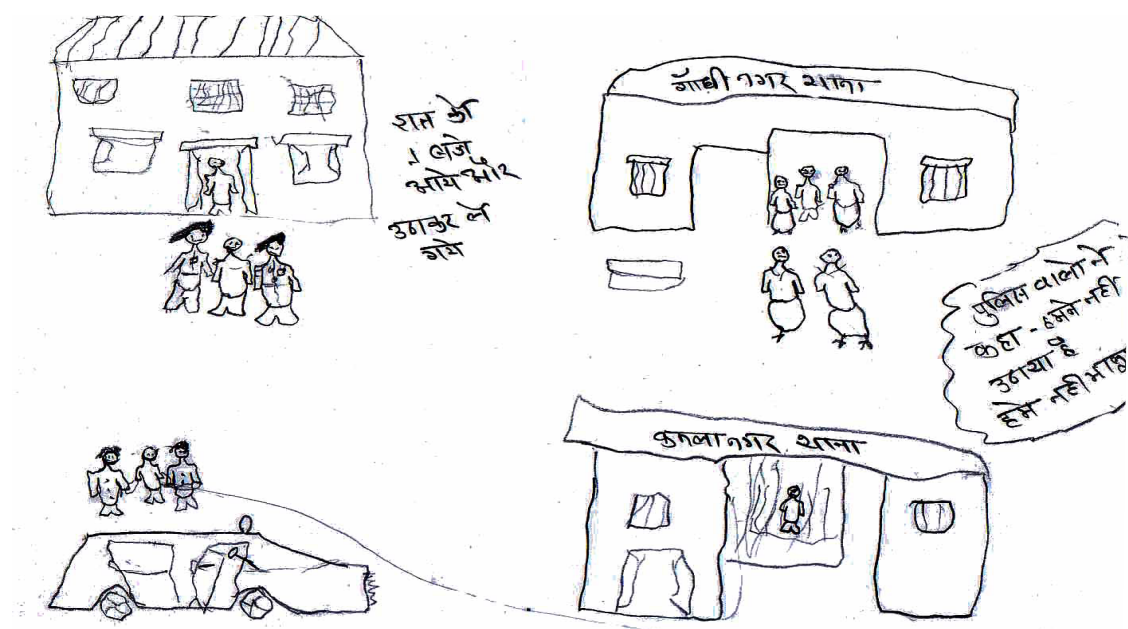 रात को
1 बजे
आये और
उठाकर ले
गये
गाँधी नगर थाना
पुलिस वालो ने
कहा - हमने नही
उठाया है
हमे नही
कमला नगर थाना